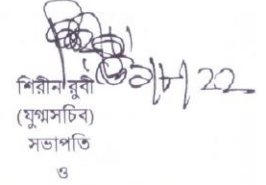 শিরীন রুবী
(যুগ্মসচিব)
সভাপতি
ও